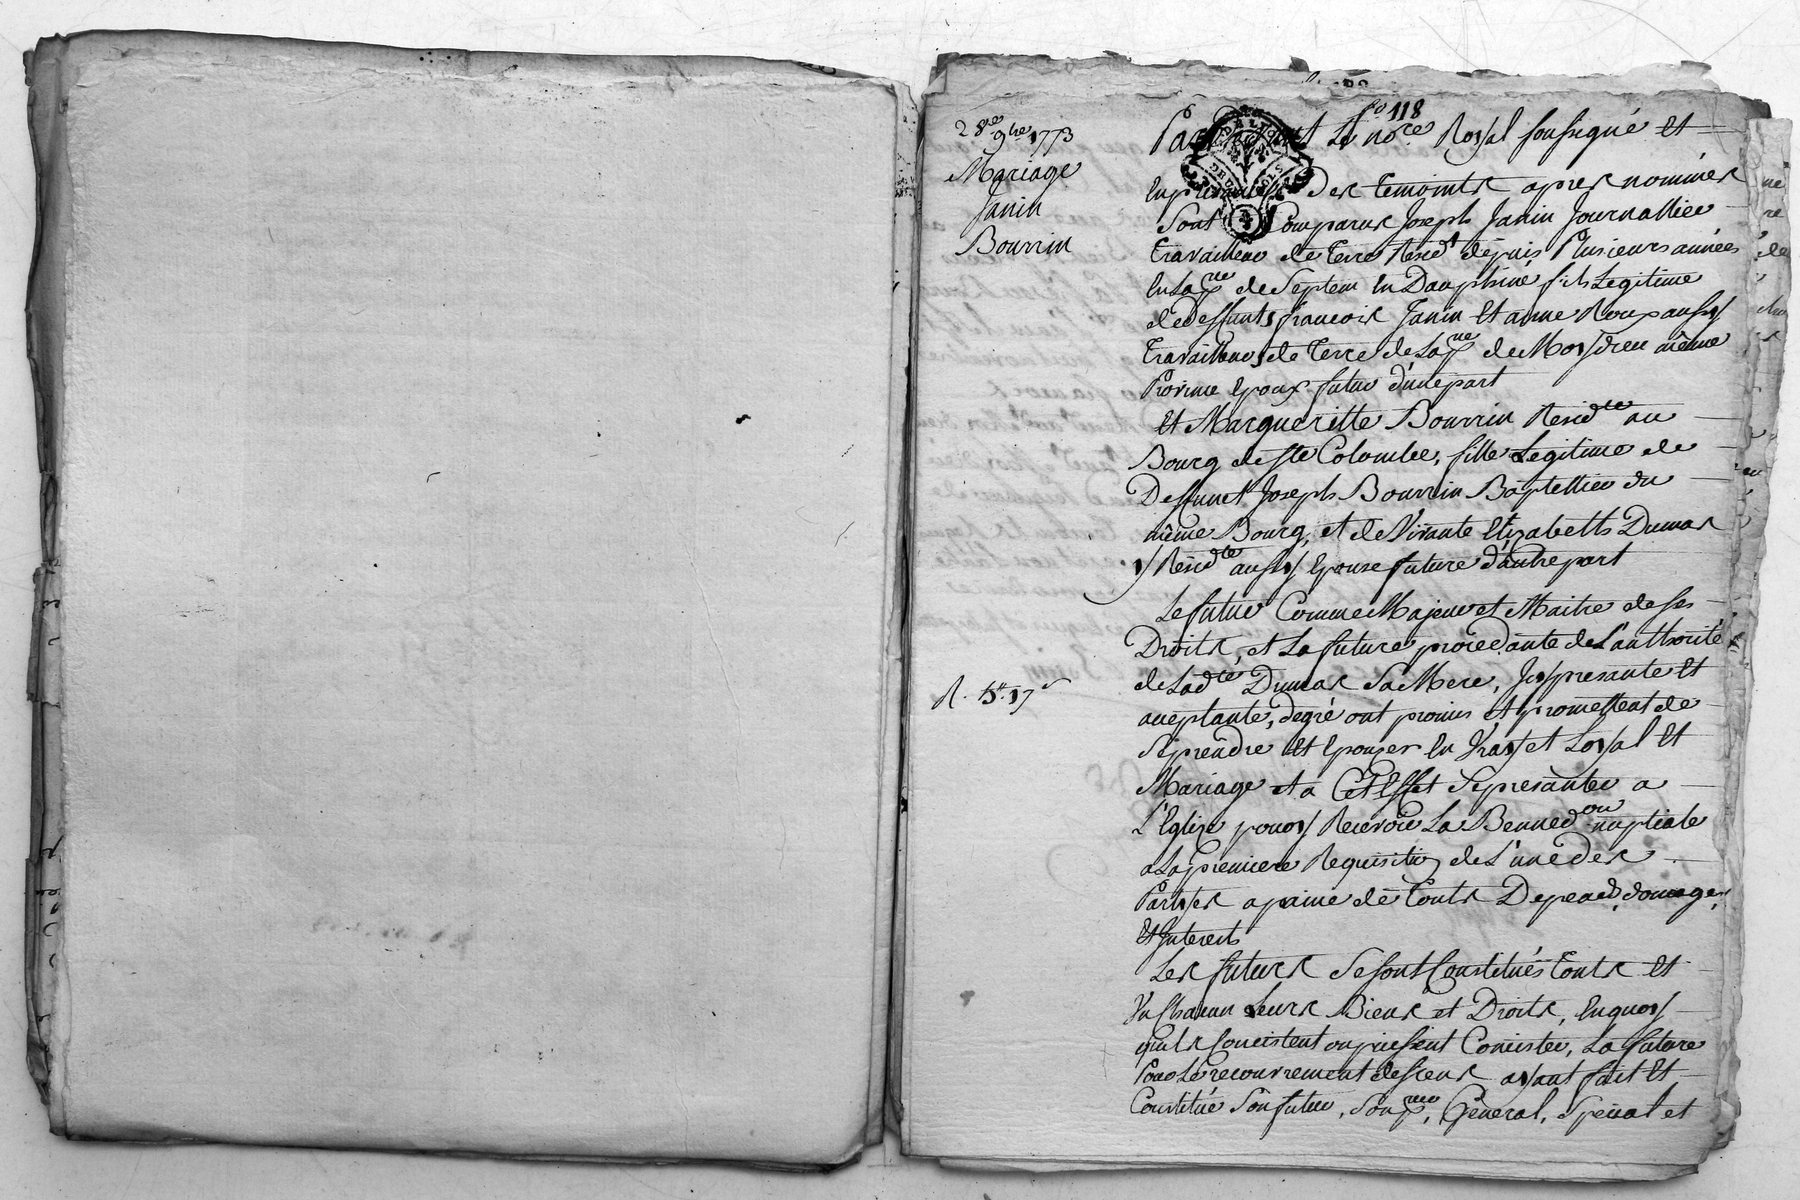 fo 118
28e 9bre 1773
Mariage
Janin
Bourrin
R. 15tt 17s
Pardevant Le nore. Royal soussigné Et
En presence Des temoints apres nommés
Sont Comparus Joseph Janin Journallier
travailleur de terre Residt depuis Plusieurs années
En La pne de Septem En Dauphiné fils Legitime
de deffunts francois Janin Et anne Roux aussy
travailleurs de terre de La pne de Moydieu même
Province Epoux futur d'une part
Et Margueritte Bourrin Residte au
Bourg de Ste Colombe, fille Legitime de
Deffunct Joseph Bourrin Battellier du
même Bourg, et de Vivante Elizabeth Dumas
y Residte aussy Epouse future d'autre part
Le futur Comme Majeur et Maitre de ses
Droits, et La future procedante de L'authorité
de Ladte Dumas sa Mere, Icy presante Et
acceptante, de gré ont promis et promettent de
se prendre Et Epouser En Vray et Loyal Et
Mariage et a Cet Effet se presanter a
L'Eglise pour y Recevoir La Benedon nuptiale
a La premiere Requisition de L'une des
Partyes a paine de touts Depends, domages
Et Interests
Les futurs se sont Constitués touts Et
Un Chacun Leurs Biens et Droits, En quoy
qu'ils Consistent ou puissent Consister, La future
Pour Le recouvrement des siens ayant fait Et
Constitué Son futur, Son preur, General, Special et